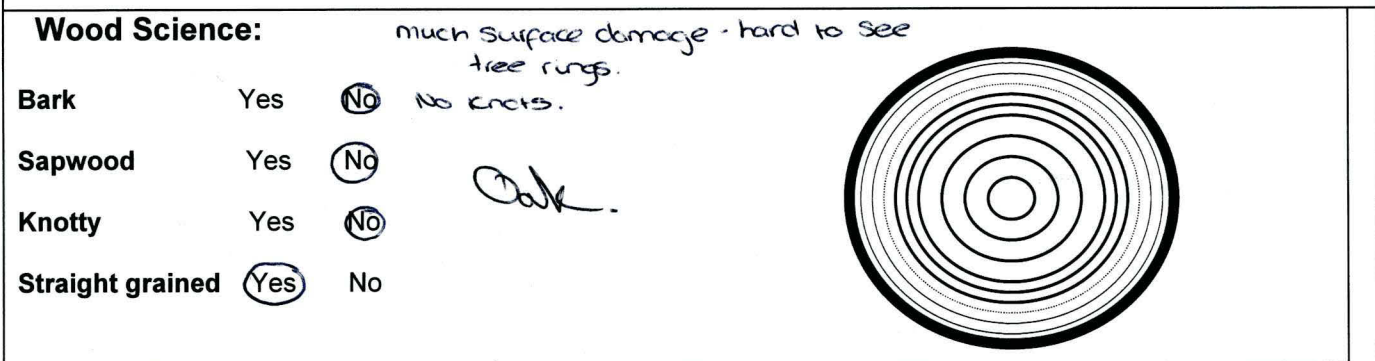 Wood Science:
much surface damage - hard to see
tree rings.
Bark Yes No No knots.
Sapwood Yes No
Oak.
Knotty Yes No
Straight grained Yes No